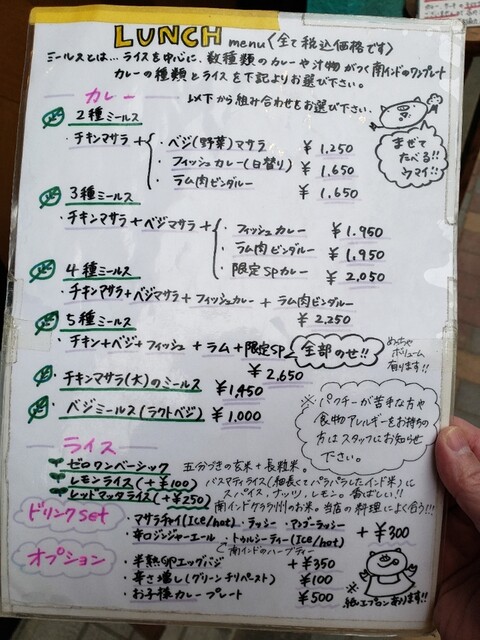 LUNCH menu (全て税込価格です)
ミールスとは…ライスを中心に、数種類のカレーや汁物がつく南インドのワンプレート
カレーの種類とライスを下記よりお選び下さい。
カレー
以下から組み合わせをお選び下さい。
2種ミールス
・チキンマサラ +
・ベジ(野菜)マサラ ¥1,250
・フィッシュカレー(日替り) ¥1,650
・ラム肉ビンダルー ¥1,650
まぜて
たべる!!
ウマイ!!
3種ミールス
・チキンマサラ+ベジマサラ+
・フィッシュカレー ¥1,950
・ラム肉ビンダルー ¥1,950
・限定SPカレー ¥2,050
4種ミールス
・チキンマサラ+ベジマサラ+フィッシュカレー+ラム肉ビンダルー
¥2,250
5種ミールス
・チキン+ベジ+フィッシュ+ラム+限定SP
全部のせ!!
めっちゃ
ボリューム
有ります!!
¥2,650
・チキンマサラ(大)のミールス ¥1,450
・ベジミールス(ラクトベジ) ¥1,000
※パクチーが苦手な方や
食物アレルギーをお持ちの
方はスタッフにお知らせ
下さい。
ライス
・ゼロワンベーシック 五分づきの玄米+長粒米。
・レモンライス(+¥100) バスマティライス(細長くてパラパラしたインド米)に
スパイス、ナッツ、レモン。香ばしい!!
・レッドマッタライス(+¥250) 南インドケララ州のお米。当店の料理によく合う!!
ドリンクSet
・マサラチャイ(Ice/hot) ・ラッシー ・マンゴーラッシー
・辛口ジンジャーエール ・トゥルシーティー(Ice/hot)
+¥300
南インドのハーブティー
オプション
・半熟卵エッグバジ +¥350
・辛さ増し(グリーンチリペースト) ¥100
・お子様カレープレート ¥500
※
紙エプロンあります!!